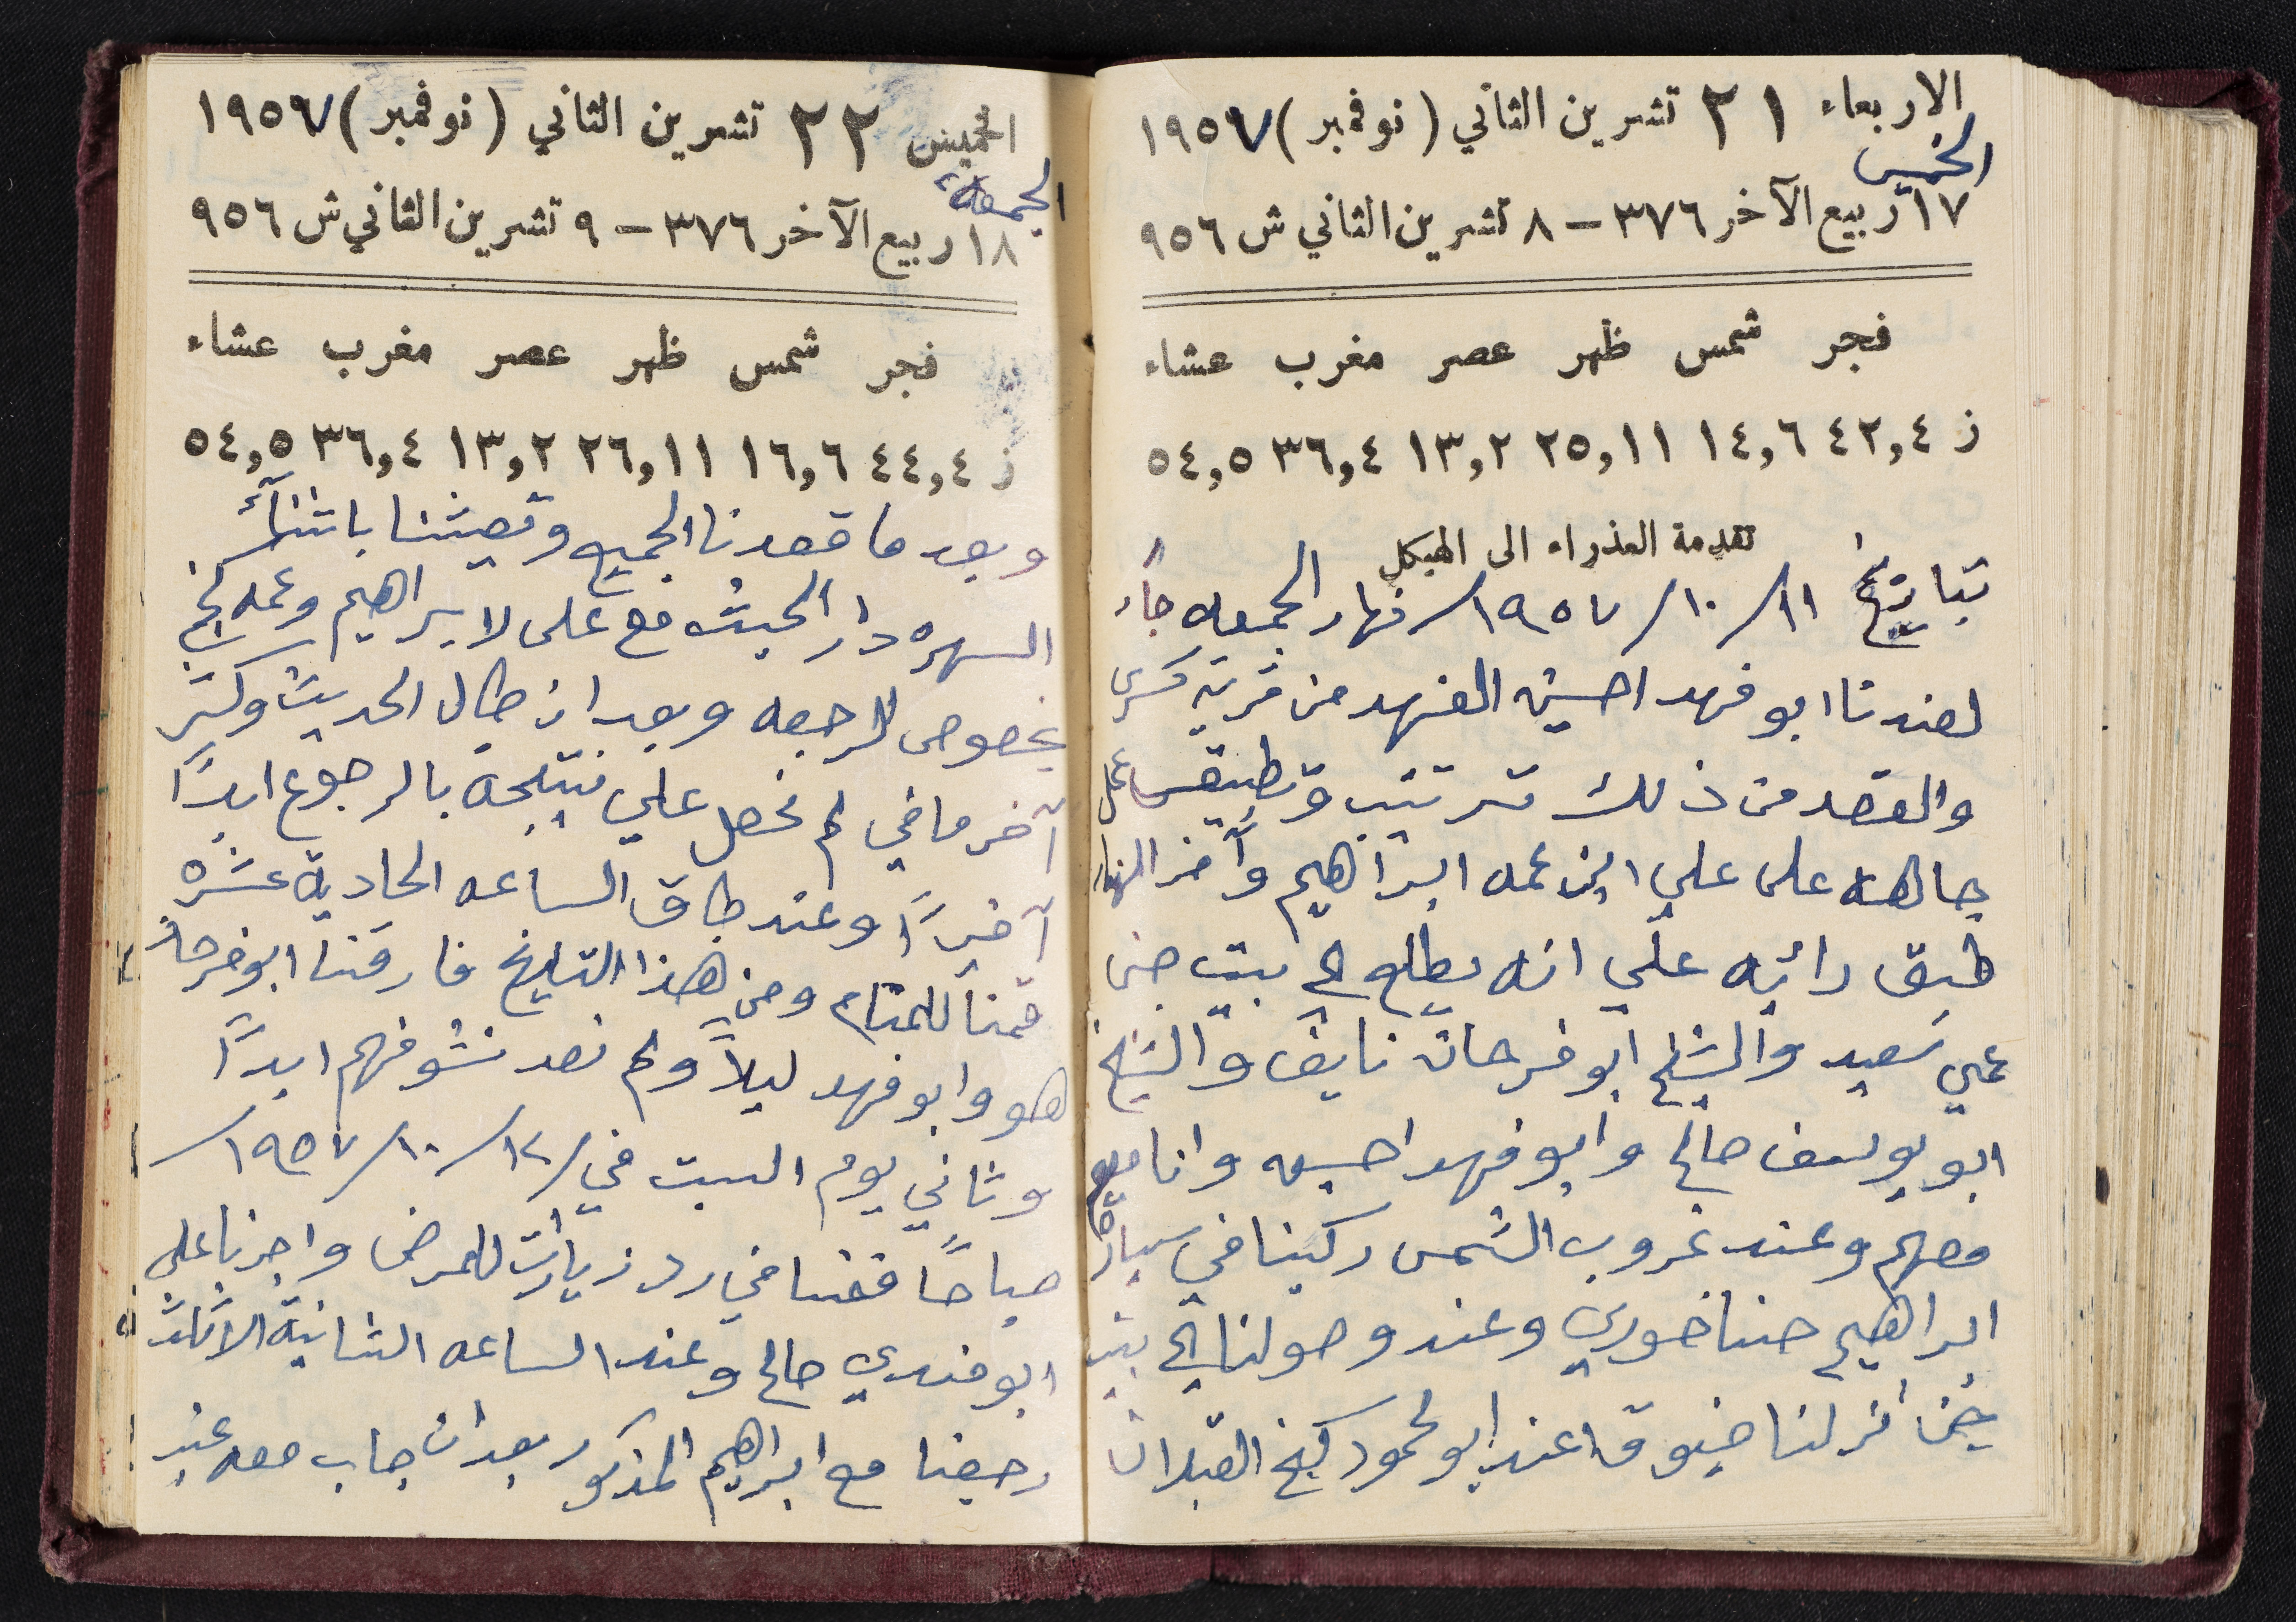 الاربعاء ٢١ تشرين الثاني (نوفمبر) ١٩٥٧
الخميس
١٧ ربيع الآخر ٣٧٦ – ٨ تشرين الثاني ش ٩٥٦
فجر شمس ظهر عصر مغرب عشاء
ز ٤٢,٤ ١٤,٦ ٢٥,١١ ١٣,٢ ٣٦,٤ ٥٤,٥
تقدمة العذراء الى الهيكل
بتاريخ ١١/١٠/١٩٥٧/ نهار الجمعه جاء
لعندنا ابو فهد احسين الفهد من قرية كسرى
والقصد من ذلك ترتيب وتطبيق عمل
جاهه على علي ابن عمه ابراهيم وآخر النهار
طبق رائيه علي انه يطلع الى بيت جن
عمي سعيد والشيخ ابو فرحان نايف والشيخ
ابو يوسف صالح وابو فهد احسين وانا
معهم وعند غروب الشمس ركبنا في سيارة
ابراهيم حنا خوري وعند وصولنا الى بيت
جن نزلنا ضيوفا عند ابو محمود القبلان
الخميس ٢٢ تشرين الثاني (نوفمبر) ١٩٥٧
الجمعة
١٨ ربيع الآخر ٣٧٦ – ٩ تشرين الثاني ش ٩٥٦
فجر شمس ظهر عصر مغرب عشاء
ز ٤٤,٤ ١٦,٦ ٢٦,١١ ١٣,٢ ٣٦,٤ ٥٤,٥
وبعد ما قعدنا الجميع وتعيشنا باثناء
السهره دار الحيث مع على لابراهيم وعمه
بخصوص الرجعه وبعد ان طال الحديث وكثر
آخر ما في لم نحصل علي نتيجة بالرجوع ابداً
آخيراً وعند طاق الساعه الحادية عشره
قمنا للمنام ومن هذا التاريخ فارقنا ابو فرحان
هو وابو فهد ليلاً ولم نعد نشوفهم ابداً
وثاني يوم السبت في/١٢/١٠/١٩٥٧/
صباحاً قفنا في رد زيارت للمرضى واجرنا علي
ابو فندي صالح وعند الساعه الثانية الاثلث
رجعنا مع ابراهيم المذكور بعد ان جاب معه عنب